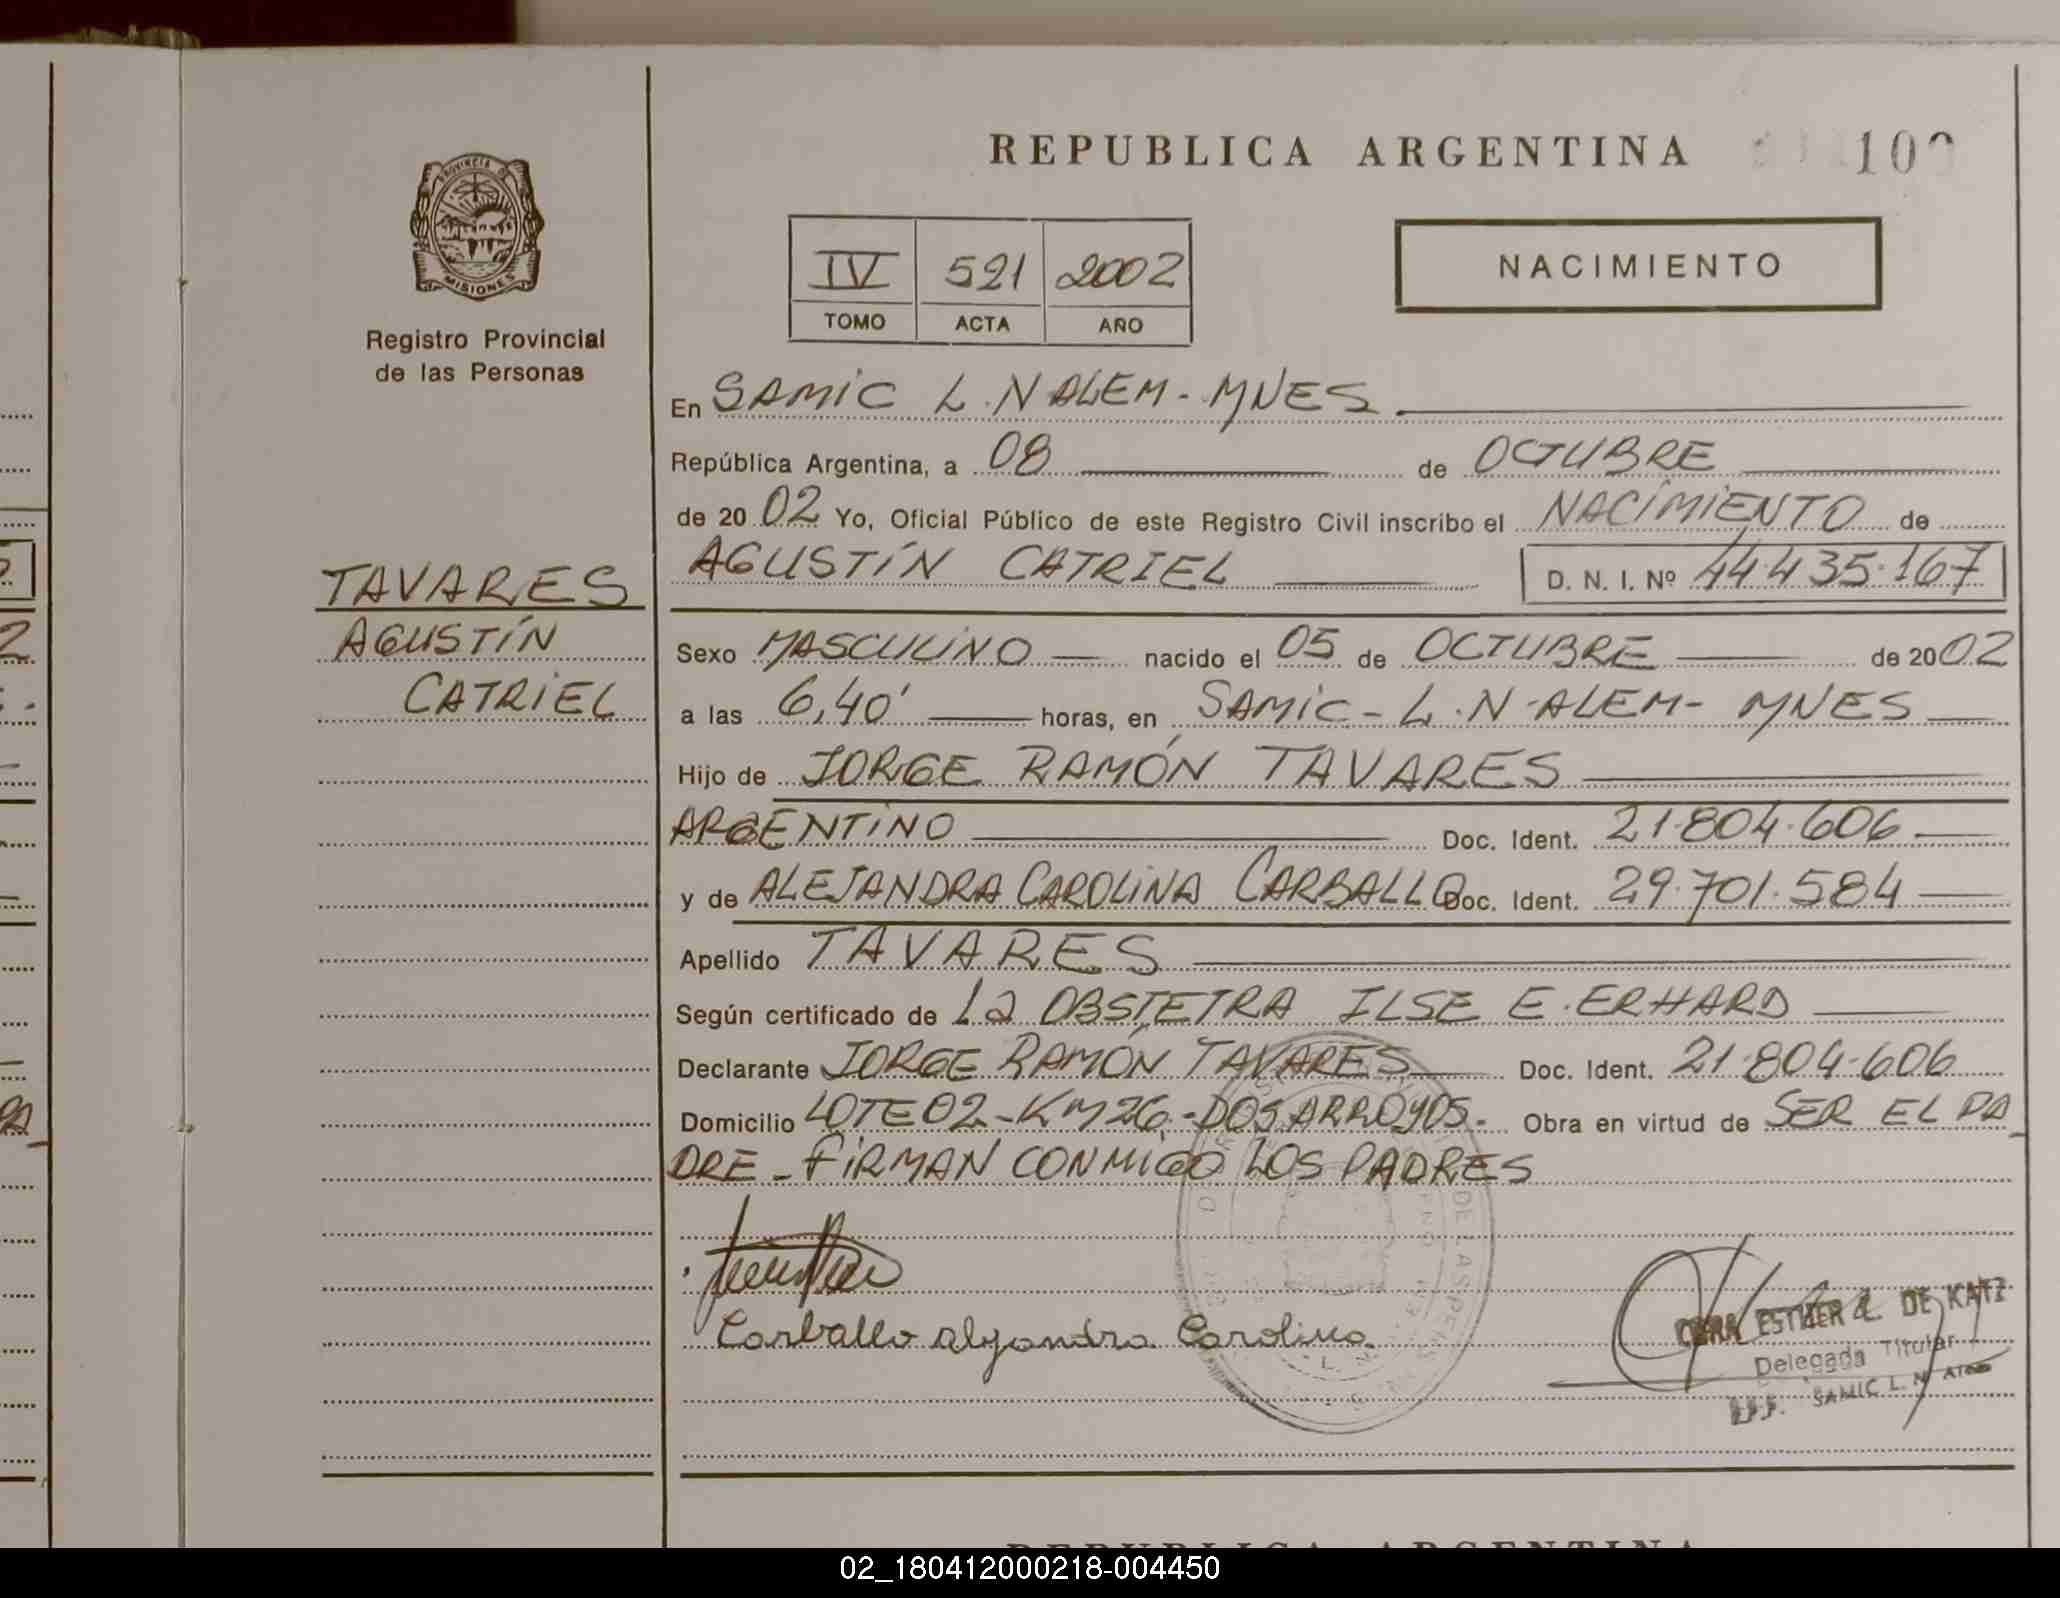 REPUBLICA ARGENTINA
PROVINCIA DE
MISIONES
Registro Provincial
de las Personas
IV 521 2002
TOMO ACTA AÑO
NACIMIENTO
En SAMIC L.N ALEM - MNES
República Argentina, a 08 de OCTUBRE
de 2002 Yo, Oficial Público de este Registro Civil inscribo el NACIMIENTO de
AGUSTÍN CATRIEL D. N. I. Nº 44.435.167
TAVARES
AGUSTÍN
CATRIEL
Sexo MASCULINO nacido el 05 de OCTUBRE de 2002
a las 6,40' horas, en SAMIC - L.N - ALEM - MNES
Hijo de JORGE RAMÓN TAVARES
ARGENTINO Doc. Ident. 21.804.606
y de ALEJANDRA CAROLINA CARBALLO Doc. Ident. 29.701.584
Apellido TAVARES
Según certificado de La OBSTETRA ILSE E. ERHARD
Declarante JORGE RAMÓN TAVARES Doc. Ident. 21.804.606
Domicilio LOTE 02 - KM 26 - DOS ARROYOS - Obra en virtud de SER EL PA
DRE - FIRMAN CONMIGO LOS PADRES
Carballo Alejandra Carolina
ESTHER DE KATZ
Delegada Titular
SAMIC L. N. Alem
REPUBLICA ARGENTINA
02_180412000218-004450